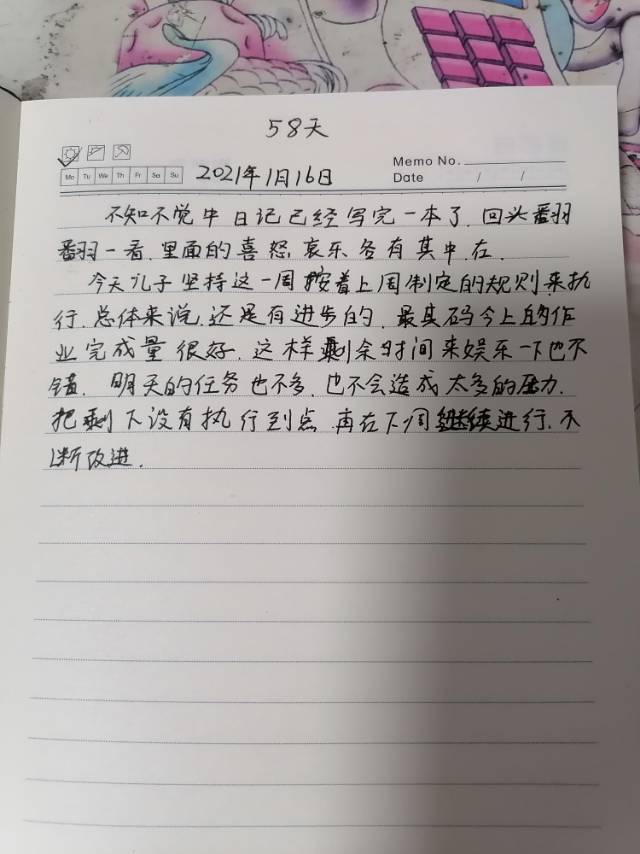 58天
Memo No.
Mo Tu We Th Fr Sa Su
2021年1月16日
Date / /
不知不觉中日记已经写完一本了.回头翻
翻一看.里面的喜怒哀乐各有其中.在.
今天儿子坚持这一周按着上周制定的规则来执
行.总体来说.还是有进步的.最其码今上的作
业完成量很好.这样剩余时间来娱乐一下也不
错.明天的任务也不多.也不会造成太多的压力.
把剩下没有执行到点.再在下周继续进行.不
断改进.